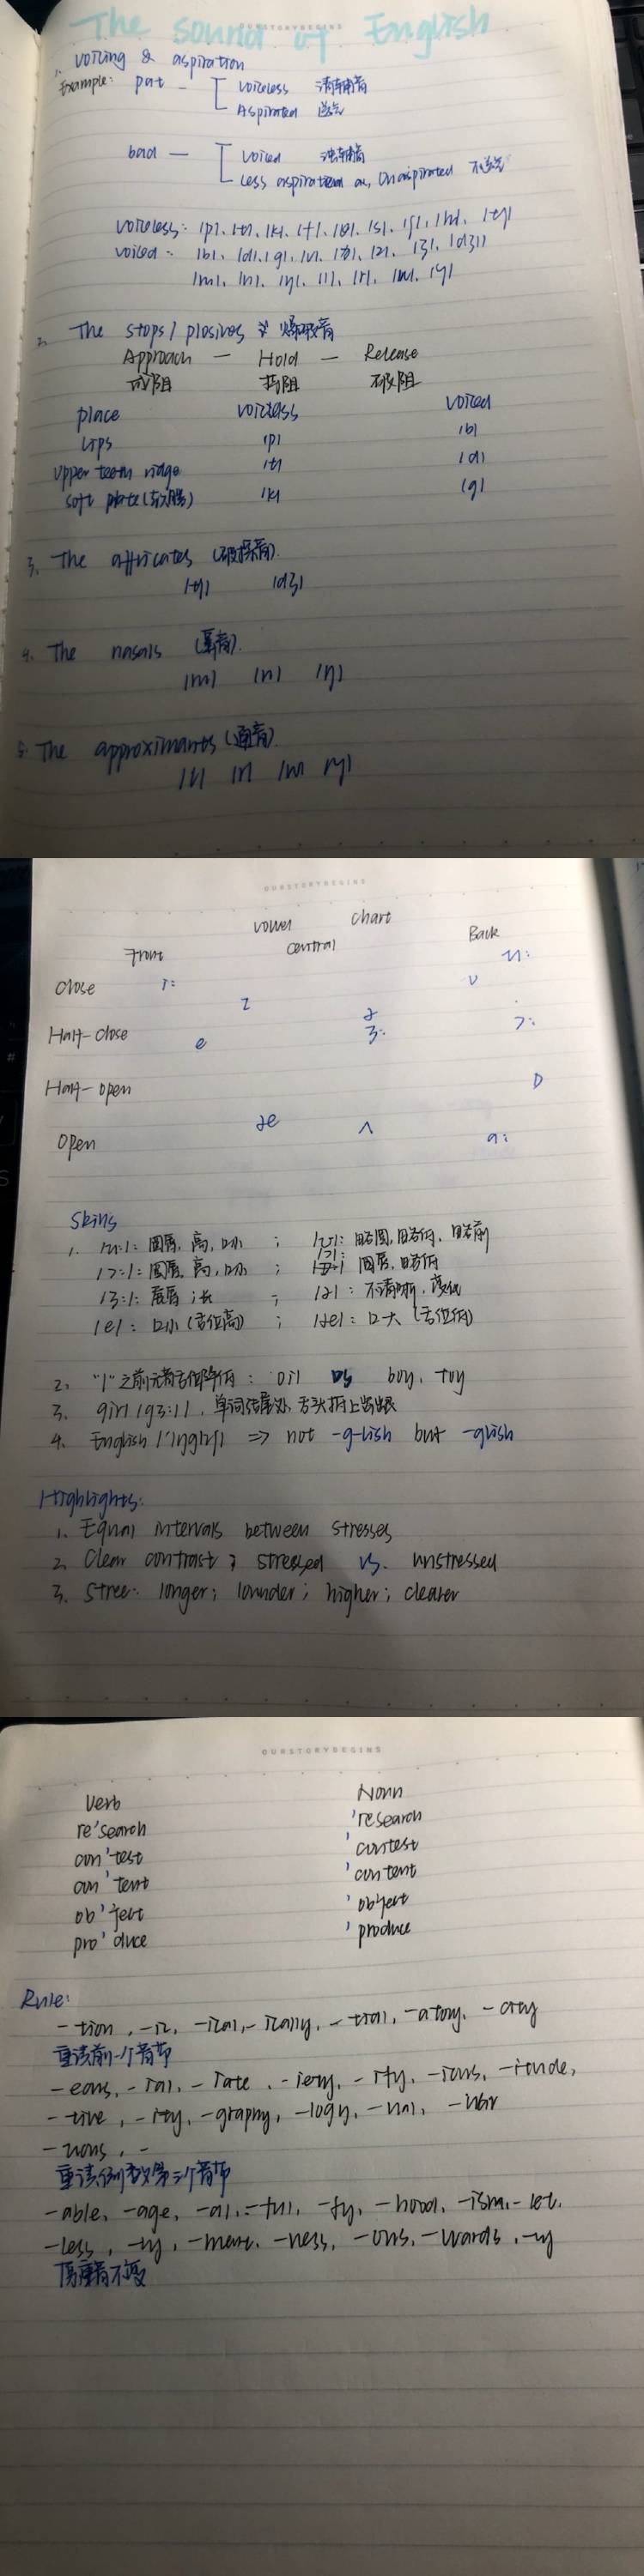 OURSTORYBEGINS
The sound of English
1. voicing & aspiration
Example: pat — voiceless 清辅音
Aspirated 送气
bad — voiced 浊辅音
Less aspiration or, Unaspirated 不送气
voiceless: /p/, /t/, /k/, /f/, /θ/, /s/, /ʃ/, /h/, /tʃ/
voiced: /b/, /d/, /g/, /v/, /ð/, /z/, /ʒ/, /dʒ/
/m/, /n/, /ŋ/, /l/, /r/, /w/, /y/
2. The stops / plosives 爆破音
Approach — Hold — Release
成阻 持阻 破阻
place voiceless voiced
Lips /p/ /b/
upper teeth ridge /t/ /d/
soft plate (软腭) /k/ /g/
3. The affricates (破擦音).
/tʃ/ /dʒ/
4. The nasals (鼻音).
/m/ /n/ /ŋ/
5. The approximants (通音).
/l/ /r/ /w/ /y/
OURSTORYBEGINS
vowel chart
Front central Back
close i: ʊ u:
ɪ
Half-close e ə ɜ: ɔ:
Half-open ɒ
open æ ʌ ɑ:
Skills
1. /u:/: 圆唇, 高, 口小 ; /ʊ/: 略圆, 略低, 略前
/ɔ:/: 圆唇, 高, 口小 ; /ɒ/: 圆唇, 略低
/ɜ:/: 展唇; 长 ; /ə/: 不清晰, 变化
/e/: 口小 (舌位高) ; /æ/: 口大 (舌位低)
2. "l" 之前元音舌位降低: oil vs boy, toy
3. girl /gɜ:l/, 单词结尾处, 舌头抵上齿龈
4. English /'ɪŋglɪʃ/ => not -g-lish but -glish
Highlights:
1. Equal intervals between stresses
2. Clear contrast: stressed vs. unstressed
3. Stree: longer; lounder; higher; clearer
OURSTORYBEGINS
Verb Noun
re'search 'research
con'test 'contest
con'tent 'content
ob'ject 'object
pro'duce 'produce
Rule:
-tion, -ic, -ical, -ically, -tial, -atory,
重读前一个音节
-eous, -ial, -iate, -iery, -ify, -ious, -itude,
-tive, -ity, -graphy, -logy, -ual,
-uous, -
重读倒数第三个音节
-able, -age, -al, -ful, -fy, -hood, -ism, -let,
-less, -ly, -ment, -ness, -ous, -wards, -y
原重音不变